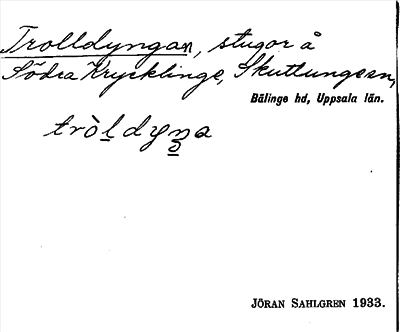 Trolldyngan, stugor å
Södra Krycklinge, Skuttungesn,
Bälinge hd, Uppsala län.
tròldyŋa
JÖRAN SAHLGREN 1933.